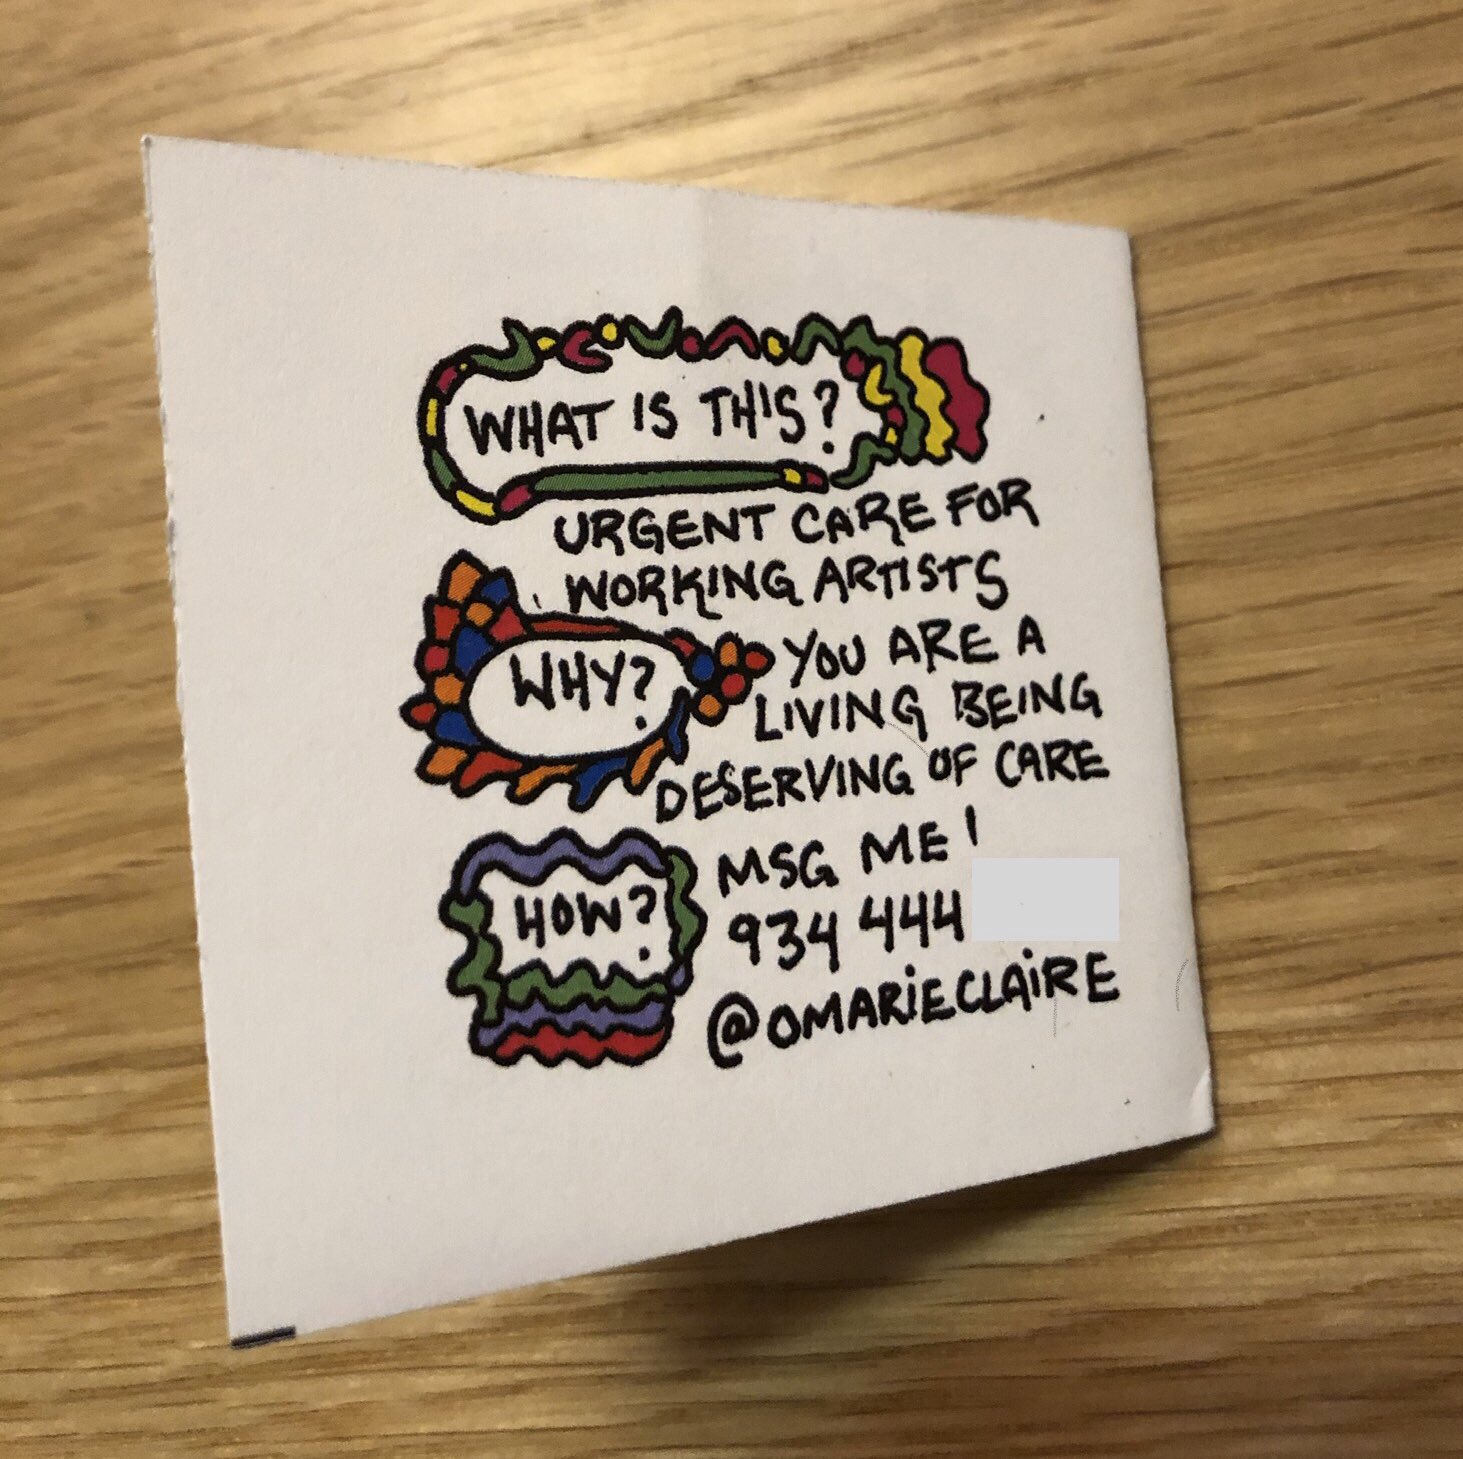 WHAT IS THIS?
URGENT CARE FOR
WORKING ARTISTS
WHY?
YOU ARE A
LIVING BEING
DESERVING OF CARE
HOW?
MSG ME!
934 444
@OMARIECLAIRE